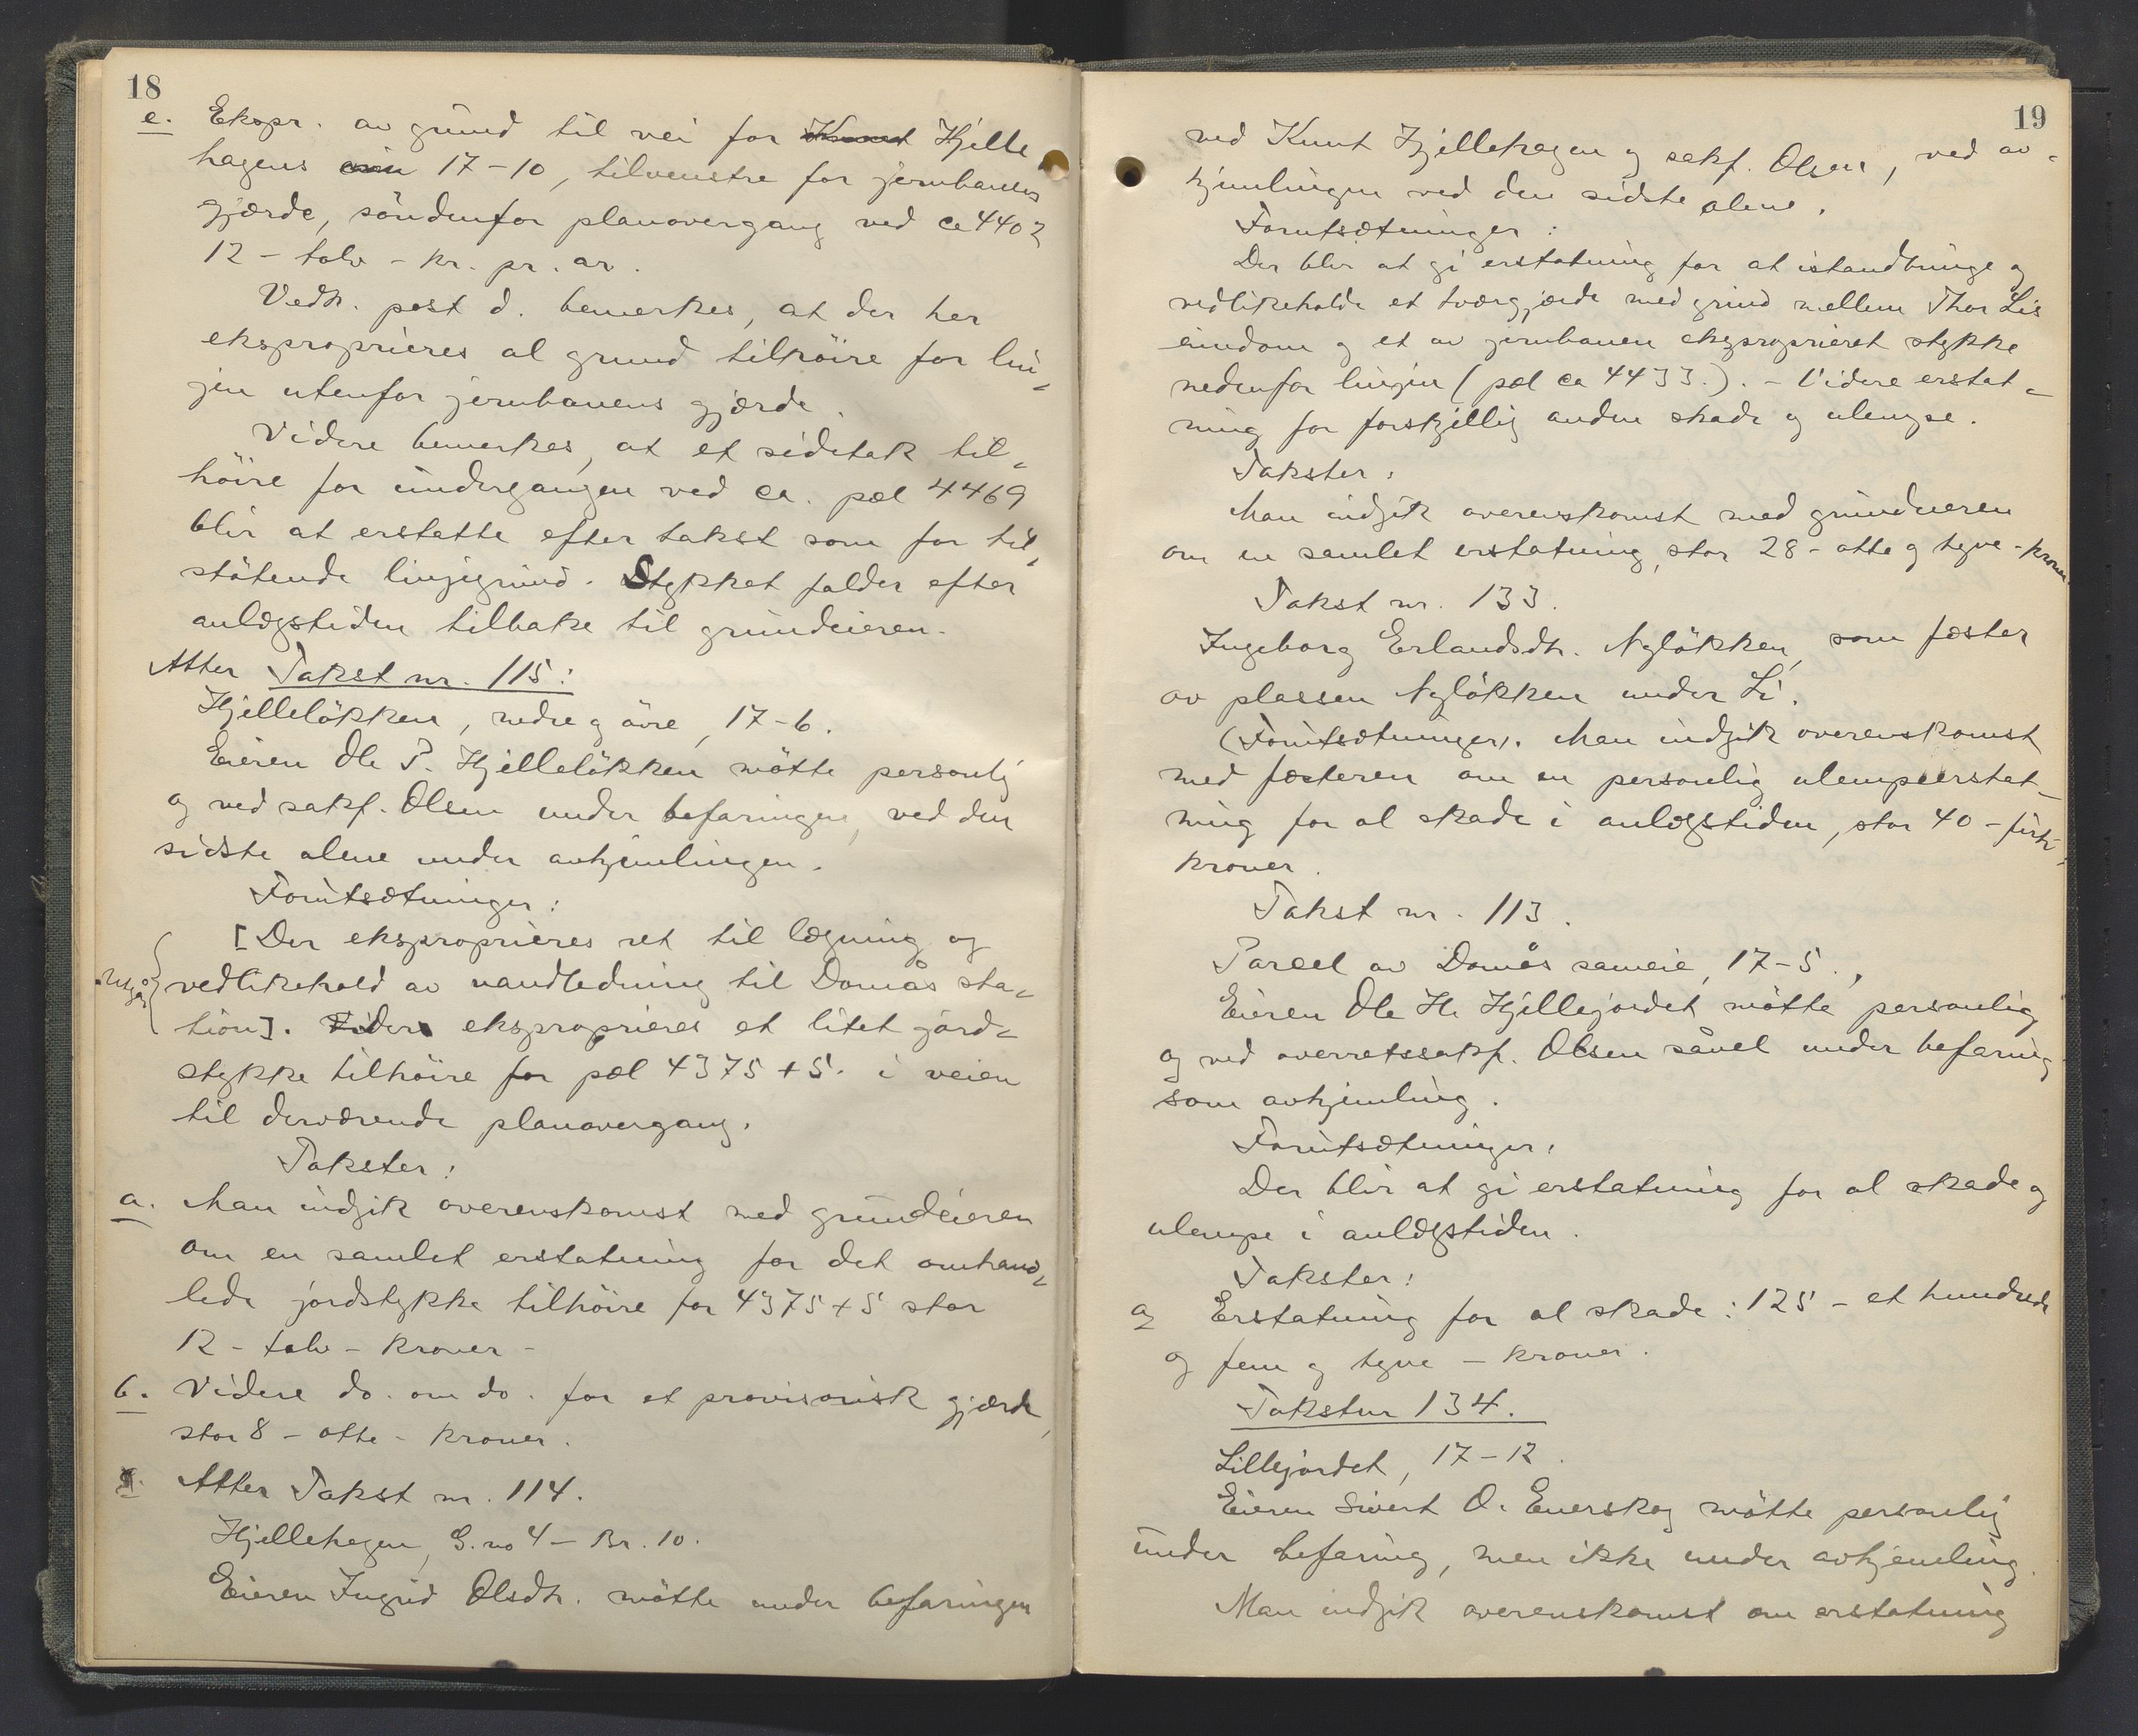 18
e. Ekspr. av grund til vei for Knut Hjelle
hagens 17-10, tilvenstre for jernbanens
gjærde, söndenfor planovergang ved ca 4403
12 - tolv - kr. pr. ar.
Vedr. post d. bemerkes, at der her
eksproprieres al grund tilhöire for lin-
jen utenfor jernbanens gjærde.
Videre bemerkes, at et sidetak til-
höire for undergangen ved ca. pæl 4469
blir at erstatte efter takst som for til-
stötende linjegrund. Stykket falder efter
anlægstiden tilbake til grundeieren.
Atter Takst nr. 115:
Hjellelökken, nedre og övre, 17-6.
Eieren Ole P. Hjellelökken mötte personlig
og ved sakf. Olsen under befaringen, ved den
sidste alene under avhjemlingen.
Forutsætninger:
[Der eksproprieres ret til lægning og
Utgår vedlikehold av vandledning til Domås sta-
tion]. Videre eksproprieres et litet jord-
stykke tilhöire for pæl 4375+5. i veien
til derværende planovergang.
Takster:
a. Man indgik overenskomst med grundeieren
om en samlet erstatning for det omhand-
lede jordstykke tilhöire for 4375+5 stor
12 - tolv - kroner -
b. Videre do. om do. for et provisorisk gjærde,
stor 8 - otte - kroner.
Atter Takst nr. 114.
Hjellehagen, G. no 4 - Br. 10.
Eieren Ingrid Olsdtr. mötte under befaringen
19
ved Knut Hjellehagen og sakf. Olsen, ved av-
hjemlingen ved den sidste alene.
Forutsætninger:
Der blir at gi erstatning for at istandbringe og
vedlikeholde et tværgjærde med grind mellem Thor Lis
eiendom og et av jernbanen ekspropriert stykke
nedenfor linjen (pæl ca 4433.). - Videre erstat-
ning for forskjellig anden skade og ulempe.
Takster:
Man indgik overenskomst med grundeieren
om en samlet erstatning, stor 28 - otte og tyve - kroner.
Takst nr. 133.
Ingeborg Erlandsdtr. Nylökken, som fæster
av plassen Nylökken under Li.
(Forutsætninger). Man indgik overenskomst
med fæsteren om en personlig ulempeerstat-
ning for al skade i anlægstiden, stor 40 - firti -
kroner.
Takst nr. 113.
Parcel av Domås sameie, 17-5.,
Eieren Ole H. Hjellejordet mötte personlig
og ved overretssakf. Olsen såvel under befaring
som avhjemling.
Forutsætninger:
Der blir at gi erstatning for al skade og
ulempe i anlægstiden.
Takster:
a Erstatning for al skade: 125 - et hundrede
og fem og tyve - kroner.
Takstnr 134.
Lillejordet, 17-12.
Eieren Sivert O. Enerskog mötte personlig
under befaring, men ikke under avhjemling.
Man indgik overenskomst om erstatning